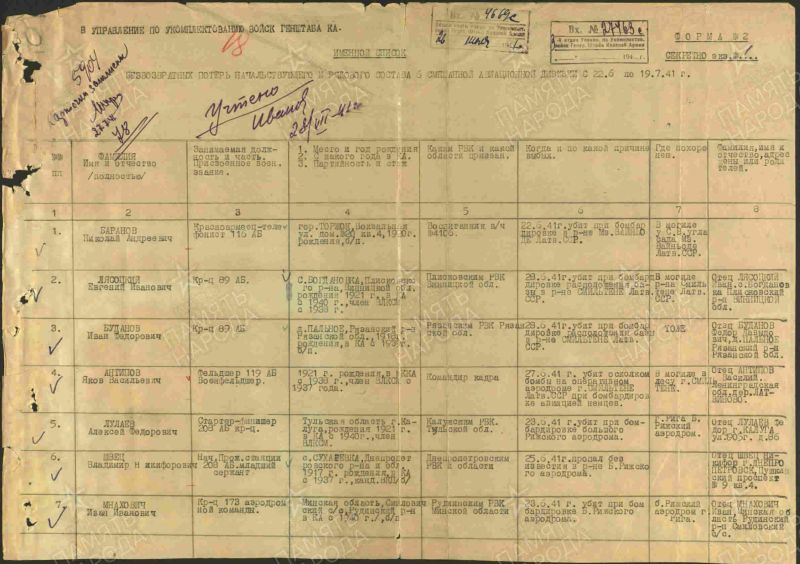 В УПРАВЛЕНИЕ ПО УКОМПЛЕКТОВАНИЮ ВОЙСК ГЕНШТАБА КА.
Вх. № 4669с
Вх. № 27763с
ФОРМА №2
СЕКРЕТНО экз.№1
ИМЕННОЙ СПИСОК
БЕЗВОЗВРАТНЫХ ПОТЕРЬ НАЧАЛЬСТВУЮЩЕГО И РЯДОВОГО СОСТАВА 6 СМЕШАННОЙ АВИАЦИОННОЙ ДИВИЗИИ С 22.6 по 19.7.41 г.
5904
Учтено
Иванов
28/VII-41г.
78
№№ пп
ФАМИЛИЯ
Имя и отчество
/полностью/
Занимаемая долж-
ность и часть.
Присвоенное воен.
звание.
1. Место и год рождения
2. С какого года в КА.
3. Партийность и стаж
Каким РВК и какой
области призван.
Когда и по какой причине
выбыл.
Где похоро-
нен.
Фамилия,имя и
отчество,адрес
жены или роди
телей.
1 2 3 4 5 6 7 8
1.
БАРАНОВ
Николай Андреевич
Красноармеец-теле-
фонист 116 АБ
гор.ТОРЖОК,Вокзальная
ул. дом.№20 кв.4,1920г.
рождения,б/п.
Воспитанник в/ч
№4106.
22.6.41г.убит при бомбар
дировке в р-не МВ.ВАЙНЮ
ДЕ Латв.ССР.
В могиле
у С.В.угла
сада МВ.
Вайньоде
Латв.ССР.
2.
ЛЯСОЦКИЙ
Евгений Иванович
Кр-ц 89 АБ.
с.БОГДАНОВКА,Плисковско
го р-на Винницкой обл.
рождения 1921 г.,в КА
с 1940 г.,член ВЛКСМ
с 1938 г.
Плисковским РВК
Винницкой обл.
28.6.41г.убит при бомбар
дировке расположения ба-
зы в р-не СМИЛЬТЕНЕ Латв.
ССР.
В могиле
в р-не Смиль
тене Латв.
ССР.
Отец ЛЯСОЦКИЙ
Иван.с.Богданов
ка Плисковский
р-н ВИННИЦКОЙ
обл.
3.
БУДАНОВ
Иван Федорович
Кр-ц 89 АБ.
д.ПАЛЬНОЕ,Рязанский р-н
Рязанской обл.,1918г.
рождения,в КА с 1938г.
б/п.
Рязанским РВК Рязан
ской обл.
28.6.41г.убит при бомбар
дировке расположения базы
в р-не СМИЛЬТЕНЕ Латв.
ССР.
ТОЖЕ
Отец БУДАНОВ
Федор Давыдо-
вич,д.ПАЛЬНОЕ
Рязанский р-н
Рязанской обл.
4.
АНТИПОВ
Яков Васильевич
Фельдшер 119 АБ
Военфельдшер.
1921 г. рождения,в РККА
с 1938 г.,член ВЛКСМ с
1937 года.
Командир кадра
27.6.41 г. убит осколком
бомбы на оперативном
аэродроме г.СМИЛЬТЕНЕ
Латв.ССР при бомбардиров-
ке авиацией немцев.
в могиле в
лесу г.СМИЛЬ
ТЕНЕ.
Отец АНТИПОВ
Василий.
Ленинградская
обл.дер.
5
ЛУЛАЕВ
Алексей Федорович
Стартер-финишер
208 АБ кр-ц.
Тульская область г.Ка-
луга,рождения 1921 г.
в КА с 1940г.,член
ВЛКСМ.
Калужским РВК.
Тульской обл.
28.6.41 г.убит при бом-
бардировке большого
Рижского аэродрома.
г.Рига Б.
Рижский
аэродром.
Отец ЛУЛАЕВ Фе
дор г.КАЛУГА
ул.1905г. д.86
6
ШВЕЦ
Владимир Никифорович
Нач.Прож.станции
208 АБ.младший
сержант
с.СУХАРЕВКА,Днепропет
ровского р-на и обл.
1917 г. рождения,в КА
с 1937 г.,канд.ВКП/б/
Днепропетровским
РВК и области
25.6.41г.пропал без
известия в р-не Б.Рижско
го аэродрома.
Отец ШВЕЦ Ни-
кифор г.ДНЕПРО
ПЕТРОВСК,Пушкин
ский проспект
№ 9 кв.4.
7
МНАХОВИЧ
Иван Иванович
Кр-ц 173 аэродром
ной команды.
Минская область,Смилович
ский с/с,Рудинский р-н
в КА с 1940 г./,б/п
Рудинским РВК
Минской области
28.6.41 г.убит при бом
бардировке Б.Рижского
аэродрома.
б.Рижский
аэродром г.
Рига.
Отец МНАХОВИЧ
Иван,Минская об
ласть Рудинский
р-н Смиловский
с/с.
ПАМЯТЬ НАРОДА